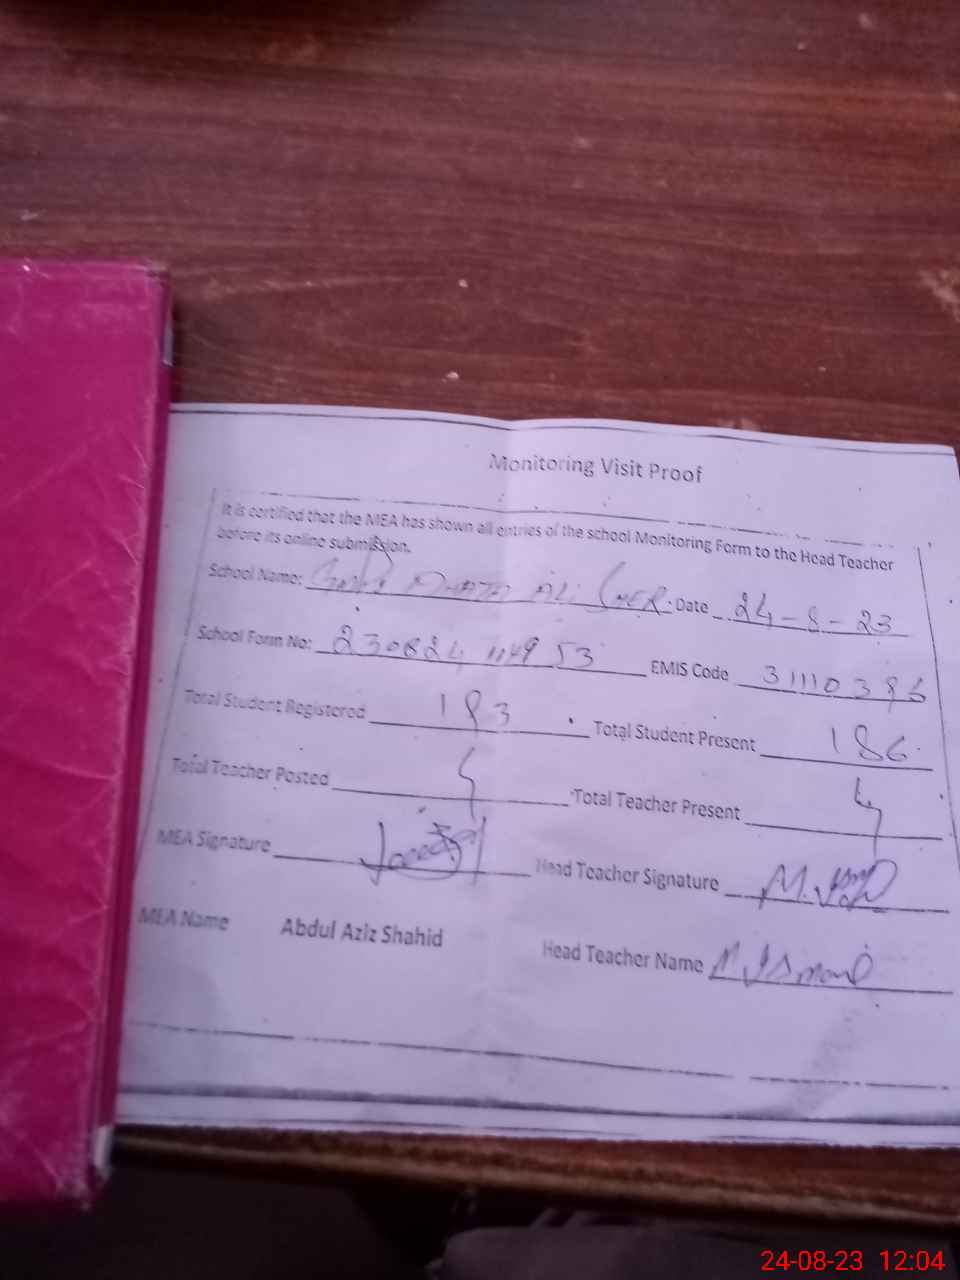 Monitoring Visit Proof
It is certified that the MEA has shown all entries of the school Monitoring Form to the Head Teacher
before its online submission.
School Name: ALi SHER Date 24-8-23
School Form No: 230824 114953 EMIS Code 31110396
Total Student Registered 193 Total Student Present 186
Total Teacher Posted Total Teacher Present 4
MEA Signature Head Teacher Signature
MEA Name Abdul Aziz Shahid Head Teacher Name
24-08-23 12:04